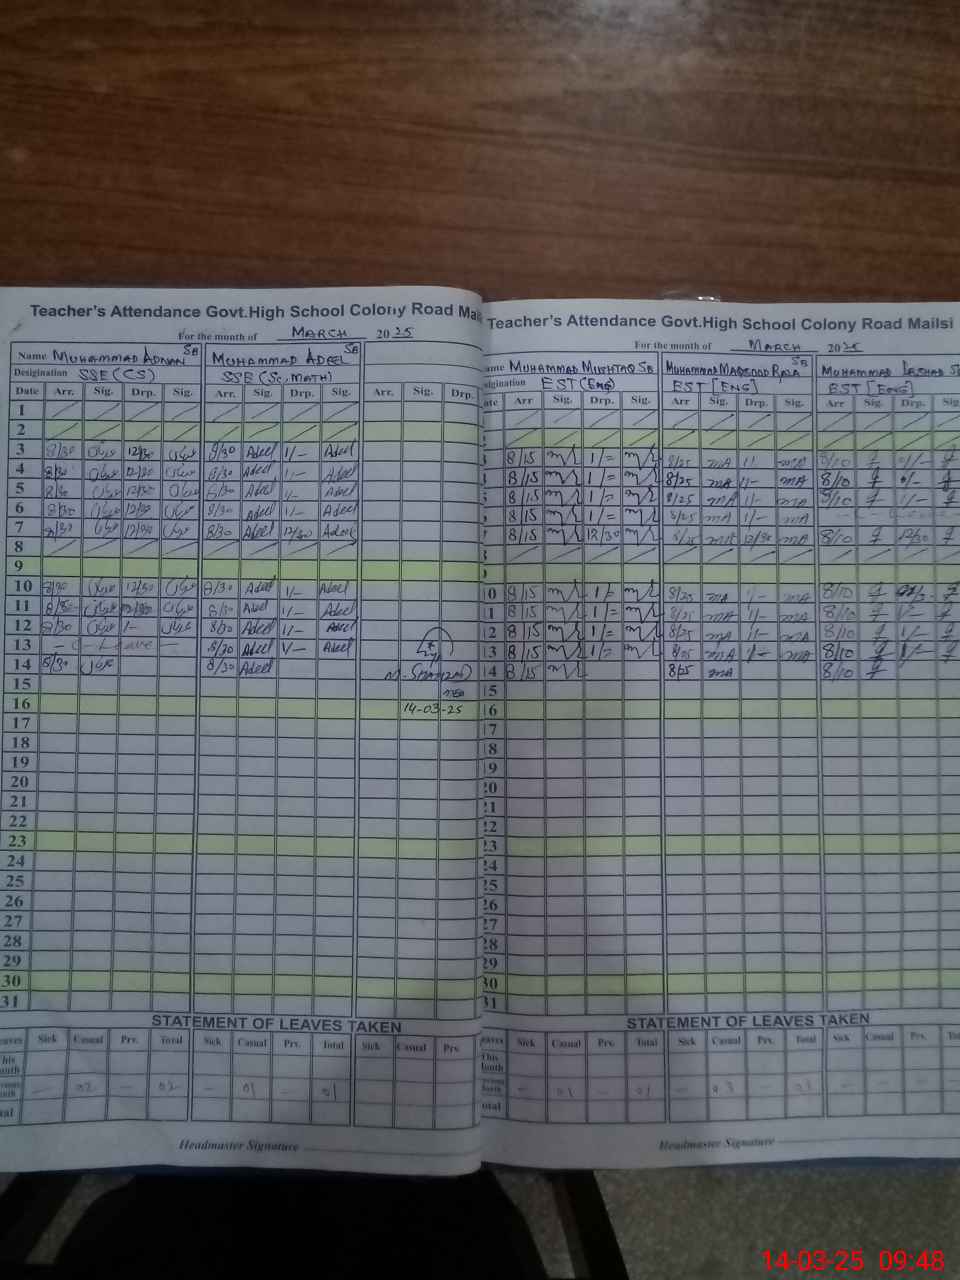 Teacher's Attendance Govt.High School Colony Road Mai
For the month of MARCH 2025
Name MUHAMMAD ADNAN SB MUHAMMAD ADEEL SB
Designation SSE (CS) SSE (Sc, MATH)
Date Arr. Sig. Drp. Sig. Arr. Sig. Drp. Sig. Arr. Sig. Drp.
1
2
3 8/30 عدنان 12/30 عدنان 8/30 Adeel 1/- Adeel
4 8/30 عدنان 12/30 عدنان 8/30 Adeel 1/- Adeel
5 8/30 عدنان 12/30 عدنان 8/30 Adeel 1/- Adeel
6 8/30 عدنان 12/30 عدنان 8/30 Adeel 1/- Adeel
7 8/30 عدنان 12/30 عدنان 8/30 Adeel 12/30 Adeel
8
9
10 8/30 عدنان 12/30 عدنان 8/30 Adeel 1/- Adeel
11 8/30 عدنان 12/30 عدنان 8/30 Adeel 1/- Adeel
12 8/30 عدنان 1/- عدنان 8/30 Adeel 1/- Adeel
13 - C - Leave - 8/30 Adeel 1/- Adeel
14 8/30 عدنان 8/30 Adeel
15
16 14-03-25
17
18
19
20
21
22
23
24
25
26
27
28
29
30
31
STATEMENT OF LEAVES TAKEN
eaves Sick Casual Prv. Total Sick Casual Prv. Total Sick Casual Prv.
This
onth
- 02 - 02 - 01 - 01
tal
Headmaster Signature
Teacher's Attendance Govt.High School Colony Road Mailsi
For the month of MARCH 2025
ame MUHAMMAD MUSHTAQ SB MUHAMMAD MAQSOOD RAJA SB MUHAMMAD
signation EST (ENG) EST [ENG] EST [ENG]
ate Arr Sig. Drp. Sig. Arr Sig. Drp. Sig. Arr Sig. Drp. Sig
8/15 1/= 8/25 MA 1/- MA 8/10
8/15 1/= 8/25 MA 1/- MA 8/10
8/15 1/= 8/25 MA 1/- MA 8/10 1/-
8/15 1/= 8/25 MA 1/- MA
8/15 12/30 8/25 MA 12/30 MA 8/10 12/30
0 8/15 1/= 8/25 MA 1/- MA 8/10
1 8/15 1/= 8/25 MA 1/- MA 8/10 1/-
12 8/15 1/= 8/25 MA 1/- MA 8/10 1/-
13 8/15 1/= 8/25 MA 1/- MA 8/10 1/-
14 8/15 8/25 MA 8/10
15
16
17
18
19
20
21
22
23
24
25
26
27
28
29
30
31
STATEMENT OF LEAVES TAKEN
eaves Sick Casual Prv. Total Sick Casual Prv. Total Sick Casual
This
onth
- 01 - 01 - 03 - 03 - - -
otal
Headmaster Signature
14-03-25 09:48